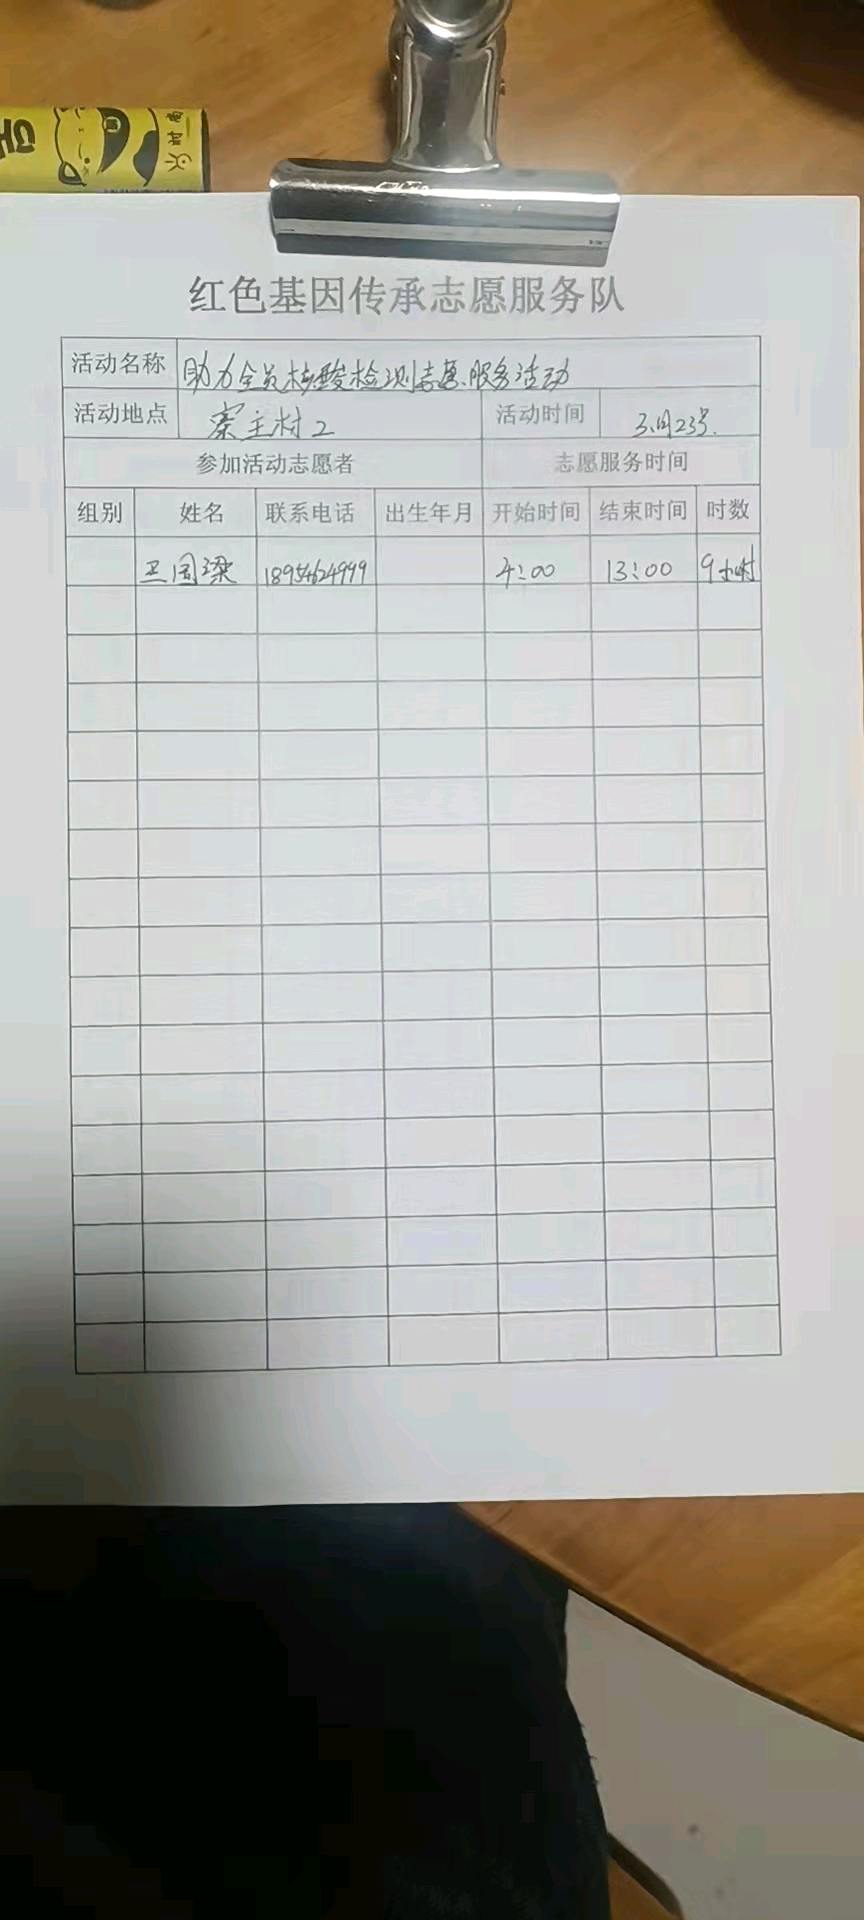 红色基因传承志愿服务队
活动名称 助力全员核酸检测志愿服务活动
活动地点 寨主村2 活动时间 3月23号.
参加活动志愿者 志愿服务时间
组别 姓名 联系电话 出生年月 开始时间 结束时间 时数
卫国梁 18954624999 4:00 13:00 9小时